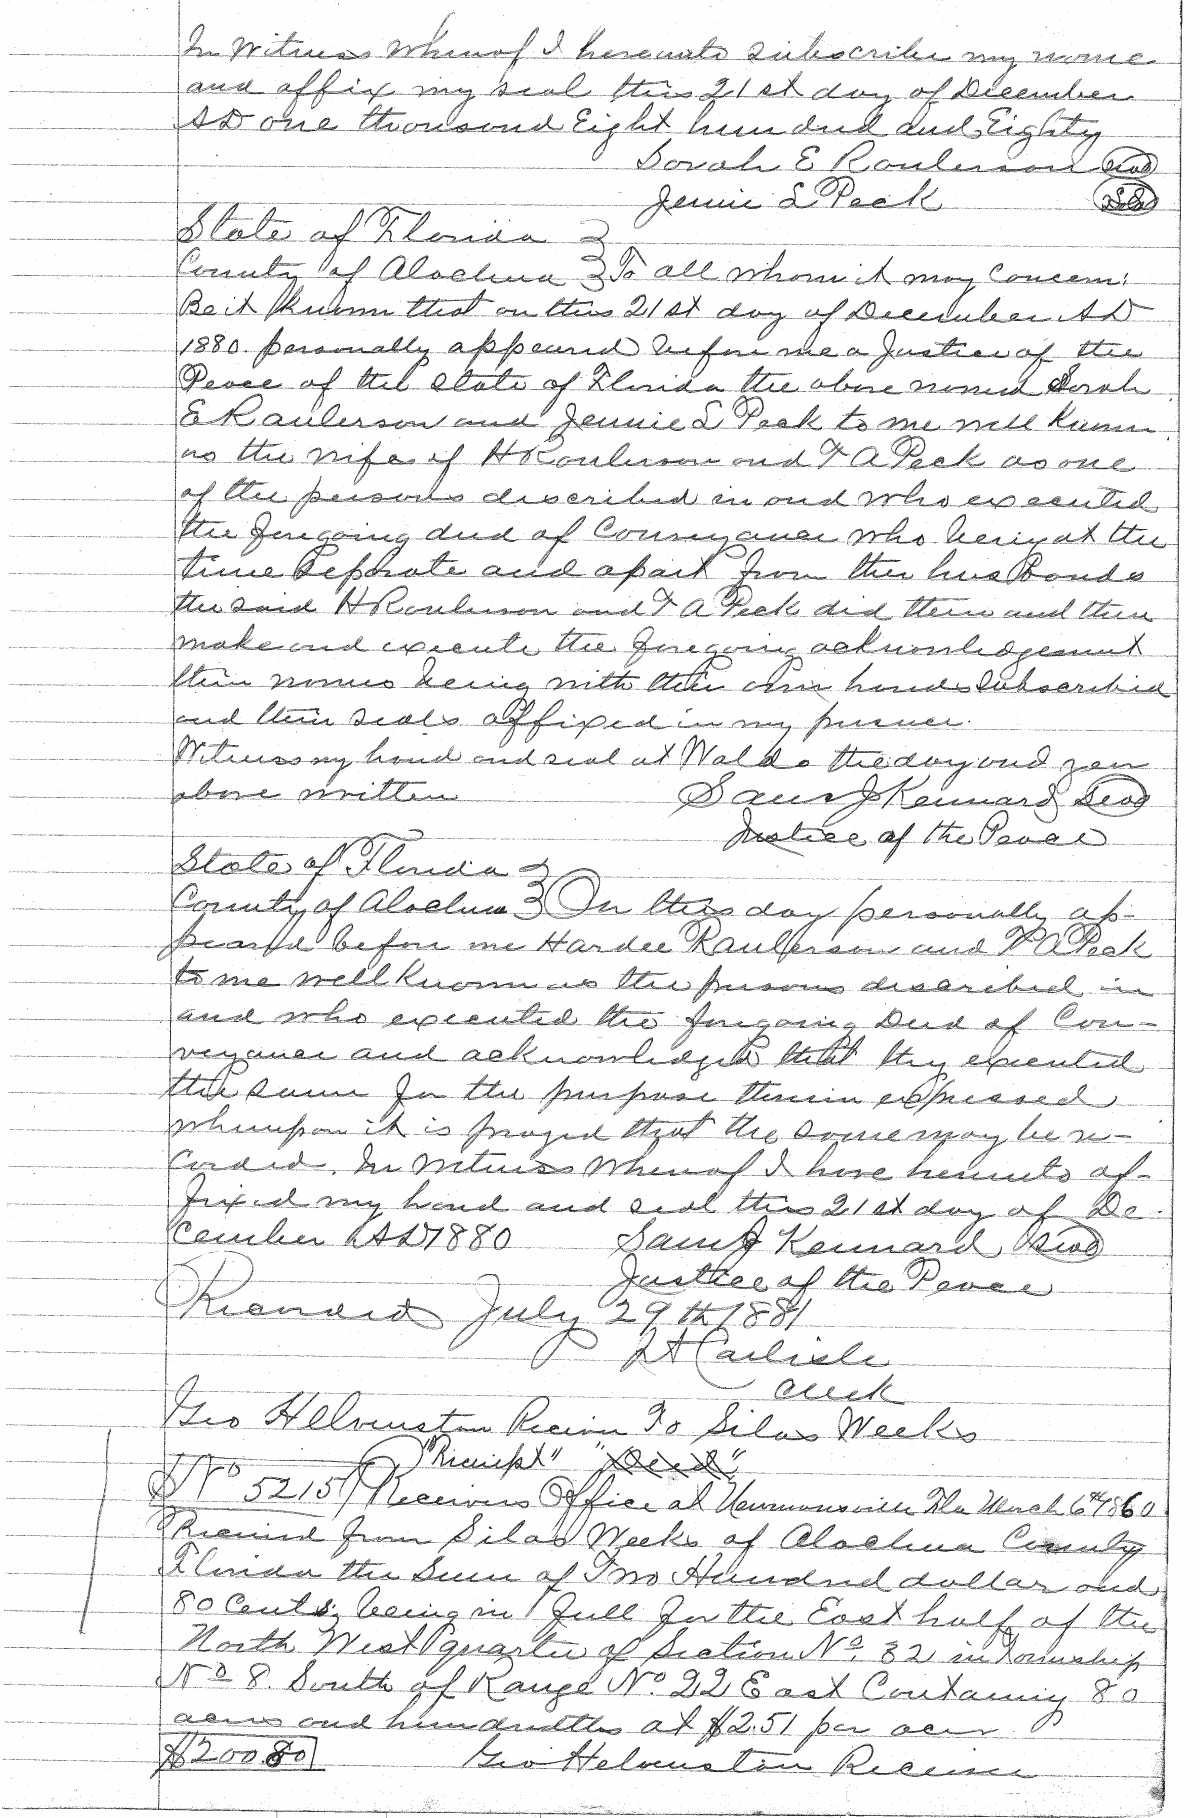 In Witness Whereof I hereunto subscribe my name
and affix my seal this 21st day of December
AD one thousand Eight hundred and Eighty
Sarah E Raulerson Seal
Jennie L Peck Seal
State of Florida }
County of Alachua } To all whom it may Concern:
Be it Known that on this 21st day of December AD
1880. personally appeared before me a Justice of the
Peace of the State of Florida the above named Sarah
E Raulerson and Jennie L Peck to me well Known
as the wife of H Raulerson and F A Peck as one
of the persons described in and who executed
the foregoing deed of Conveyance who being at the
time Seperate and apart from their husbands
the said H Raulerson and F A Peck did then and there
make and execute the foregoing acknowledgement
their names being with their own hands Subscribed
and their seals affixed in my presence.
Witness my hand and seal at Waldo the day and year
above written Saml J Kennard Seal
Justice of the Peace
State of Florida }
County of Alachua } On this day personally ap-
peared before me Hardee Raulerson and F A Peck
to me well Known as the persons described in
and who executed the foregoing Deed of Con-
veyance and acknowledged that they executed
the same for the purpose therein expressed
whereupon it is prayed that the same may be re-
corded. In Witness Whereof I have hereunto af-
fixed my hand and seal this 21st day of De-
cember AD 1880 Saml J Kennard Seal
Justice of the Peace
Recorded July 29th 1881
J A Carlisle
Clerk
Geo Helvenston Receiver To Silas Weeks
"Receipt" "Deed"
No 5215 Receivers Office at Newnansville Fla March 6th 1860
Received from Silas Weeks of Alachua County
Florida the Sum of Two Hundred dollar and
80 Cents; being in full for the East half of the
North West quarter of Section No. 32 in Township
No 8. South of Range No. 22 East Containing 80
acres and hundredths at $2.51 per acre
$200.80 Geo Helvenston Receiver